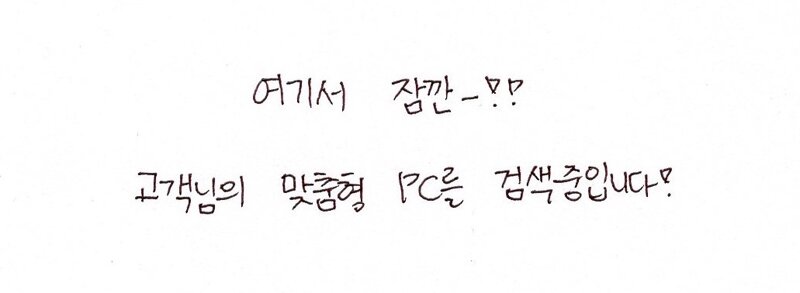 여기서 잠깐-!!
고객님의 맞춤형 PC를 검색중입니다!